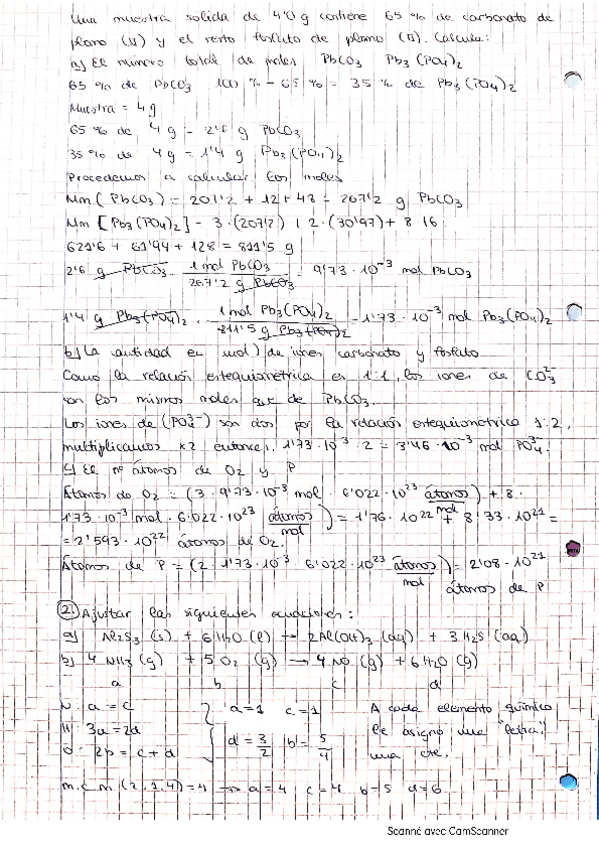 Una muestra solida de 4'0 g contiene 65 % de carbonato de
plomo (II) y el resto fosfato de plomo (II). Calcula:
a) El número total de moles PbCO3 Pb3(PO4)2
65 % de PbCO3 100 % - 65 % = 35 % de Pb3(PO4)2
Muestra = 4 g
65 % de 4 g = 2'6 g PbCO3
35 % de 4 g = 1'4 g Pb3(PO4)2
Procedemos a calcular los moles
Mm (PbCO3) = 207'2 + 12 + 48 = 267'2 g PbCO3
Mm [Pb3(PO4)2] = 3·(207'2) + 2·(30'97) + 8·16
621'6 + 61'94 + 128 = 811'5 g
2'6 g PbCO3 · 1 mol PbCO3 / 267'2 g PbCO3 = 9'73·10^-3 mol PbCO3
1'4 g Pb3(PO4)2 · 1 mol Pb3(PO4)2 / 811'5 g Pb3(PO4)2 = 1'73·10^-3 mol Pb3(PO4)2
b) La cantidad en mol) de iones carbonato y fosfato
Como la relación estequiométrica es 1:1, los iones de CO3^2-
son los mismos moles que de PbCO3.
Los iones de (PO4^3-) son dos por la relación estequiométrica 1:2,
multiplicamos x2 entonces. 1'73·10^-3 · 2 = 3'46·10^-3 mol PO4^3-.
c) El nº átomos de O2 y P
Átomos de O2 = (3·9'73·10^-3 mol · 6'022·10^23 átomos/mol) + 8·
1'73·10^-3 mol · 6'022·10^23 átomos/mol) = 1'76·10^22 + 8'33·10^21 =
= 2'593·10^22 átomos de O2.
Átomos de P = (2·1'73·10^-3 · 6'022·10^23 átomos/mol) = 2'08·10^21
átomos de P
2. Ajustar las siguientes ecuaciones:
a) Al2S3 (s) + 6 H2O (l) → 2Al(OH)3 (aq) + 3 H2S (aq)
b) 4 NH3 (g) + 5 O2 (g) → 4 NO (g) + 6 H2O (g)
a b c d
N: a = c a = 1 c = 1 A cada elemento químico
H: 3a = 2d d = 3/2 b = 5/4 le asigno una "letra",
O: 2b = c + d una cte.
m.c.m (2,1,4) = 4 → a = 4 c = 4 b = 5 d = 6
Scanné avec CamScanner